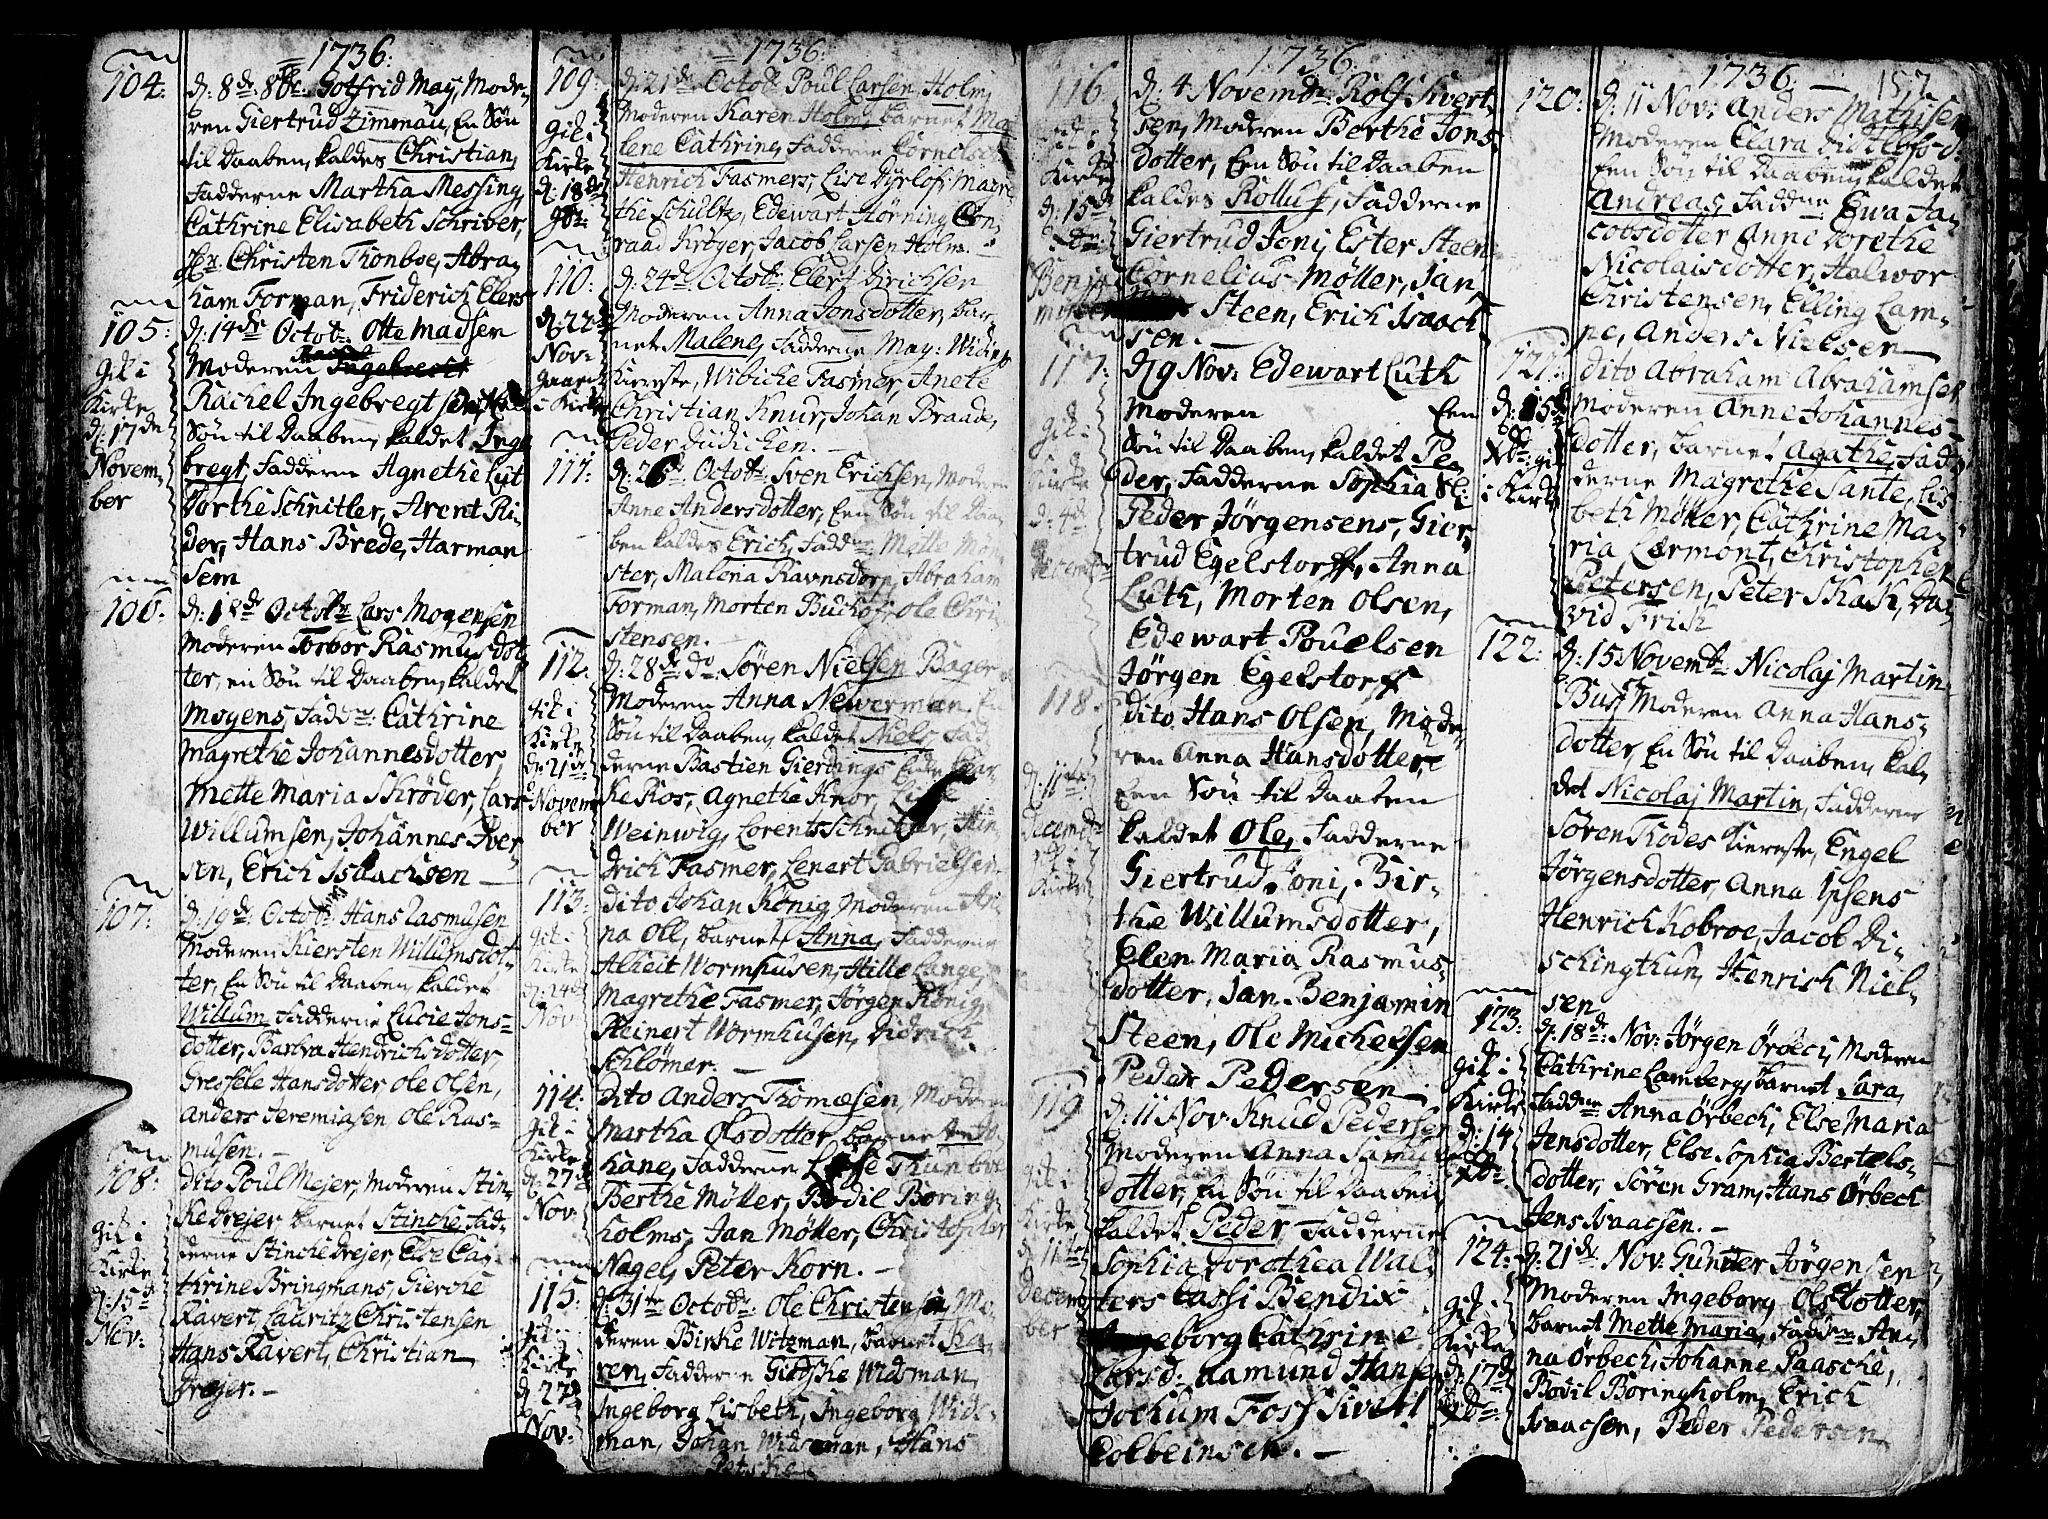 1736.
104.
d. 8de 8br. Gotfrid May, Mode-
ren Giertrud Zimmau, En Søn
til Daaben, kaldes Christian,
Fadderne Martha Messing,
Cathrine Elisabeth Schriver,
Christen Thonboe, Abra-
ham Forman, Friderich Elers
105:
gik i
Kirke
d. 17de
Novem-
ber
d. 14de Octob: Otte Madsen
Moderen
Rachel Ingebregt
Søn til Daaben, kaldet Inge-
bregt, Fadderne Agnethe Lut
Dorthe Schnitler, Arent Ri-
der, Hans Brede, Harman
Sem
106:
d. 18de Octobr Lars Mogensen
Moderen Torbor Rasmusdot-
ter, en Søn til Daaben, kaldet
Mogens, Faddne: Cathrine
Magrethe Johannesdotter
Mette Maria Schrøder, Lars
Willumsen, Johannes Iver-
sen, Erich Isaachsen
107:
d. 19de Octob Hans Rasmusen
Moderen Kiersten Willumsdot-
ter, En Søn til Daaben, kaldes
Willum Fadderne Lucie Jons-
dotter, Barbra Hendrichsdotter,
Gressele Hansdotter, Ole Olsen,
Anders Jeremiasen Ole Ras-
musen.
108:
gik i
Kirke
d. 15de
Nov:
dito Poul Mejer, Moderen Stin-
ke Drejer barnet Stinche Fad-
derne Stinche Drejer, Else Ca-
thrine Bringmans, Gierche
Ravert Lauritz Christensen
Hans Ravert, Christian
Drejer.
1736:
109:
gik i
Kirke
d. 18de
d. 21de Octob. Poul Larsen Holm,
Moderen Karen Holm, barnet Ma-
lene Cathrine, Fadderne Cornelsch
Henrich Fasmers, Lise Dyrlofs Magre-
the Schultz, Edewart Hørning Con-
raad Krøger, Jacob Larsen Holm.
110:
d. 22de
Nov:
gaaen
i Kirke
d. 24de Octob: Elert Dirichsen
Moderen Anna Jonsdotter, bar-
net Malene, Fadderne May: Widings
Kiereste, Wibiche Fasmer, Anete
Christian Knur, Johan Braade,
Peder Didichen.
111:
d. 26de Octobr Sven Erichsen, Moderen
Anne Andersdotter, En Søn til Daa-
ben kaldes Erich, Faddne: Mette Møn-
ster, Malena Ravnsdorp, Abraham
Forman, Morten Buchof, Ole Chri-
stensen.
112:
gik i
Kirke
d. 21de
Novem
ber
d: 28de do Søren Nielsen Bager
Moderen Anna Newerman. En
Søn til Daaben, kaldet Niels Fad-
derne Bastien Gierdings
ke Kios, Agnethe Knor,
Weinwig, Lorents Schnitler, Hin-
drich Fasmer, Lenert Gabrielsen
113:
gik i
Kirke
d: 24de
Nov
dito Johan König, Moderen An-
na Oll, barnet Anna, Fadderne
Alheit Wormhusen, Hille Lange,
Magrethe Fasmer, Jørgen König
Reinert Wormhusen, Didrich
Schlømer.
114:
gik i
Kirke
d: 27de
Nov:
Dito Anders Thomæsen, Moderen
Martha Olsdotter, barnet Jo-
hane, Fadderne Lisse Thunboe
Berthe Møller, Bodil Boring-
holms, Jan Møller, Christopher
Nagel, Peter Korn.
115.
gik i
Kirke
d. 27de
Nov:
d. 31te Octobr: Ole Christensen Mo-
deren Birthe Witzman, barnet Ka-
ren, Fadderne Giesche Widsman,
Ingeborg Lisbeth, Ingeborg Wids-
man, Johan Widsman, Hans
Petsche
1736.
116
gik i
Kirke
d. 15de
d. 4 Novembr Rolf Sivert-
sen, Moderen Berthe Jons
dotter, Een Søn til Daaben
kaldes Rolluf, Fadderne
Giertrud Joni, Ester Steen
Cornelius Møller, Jan
Benja-
min
Steen, Erich Isaach
sen.
117.
gik i
Kirke
d: 4de
Decembr
d 9 Nov: Edewart Luth
Moderen Een
Søn til Daaben, kaldet Pe-
der, Fadderne Sophia Sl:
Peder Jørgensens, Gier-
trud Egelstorff, Anna
Luth, Morten Olsen,
Edewart Pouelsen
Jørgen Egelstorff
118.
d: 11te
Decembr
gik i
Kirke
dito Hans Olsen, Mode-
ren Anna Hansdotter,
Een Søn til Daaben
kaldet Ole, Fadderne
Giertrud Joni, Bir-
the Willumsdotter,
Elen Maria Rasmus-
dotter, Jan Benjamin
Steen, Ole Michelsen
Peder Pedersen
119
gik i
Kirke
d: 11te
Decem-
ber
d: 11 Nov Knud Pedersen
Moderen Anna Samu
dotter, En Søn til Daaben
kaldet Peder Fadderne
Sophia Dorothea Wal-
ters Cassi Bendix
Ingeborg Cathrine
Larsd: Aamund Hansen
Jochum Foss Sivert
Colbeinsen.
1736:
157
120:
d. 11 Nov: Anders Mathisen
Moderen Clara Didilofs d:
Een Søn til Daaben, kaldet
Andreas, Faddne: Ewa Ja-
cobsdotter Anne Dorethe
Nicolaisdotter, Halwor
Christensen, Elling Lam-
pe, Anders Nielsen
121:
d. 15de
Xbr: gik
i Kirke
dito Abraham Abrahamsen
Moderen Anne Johannes-
dotter, barnet Agathe, Fad-
derne Magrethe Sante, Lis-
beth Møller, Cathrine Ma-
ria Lærmont, Christopher
Petersen, Peter Skak, Da-
vid Frich
122:
d: 15 Novembr: Nicolaj Martin
Bus, Moderen Anna Hans-
dotter, En Søn til Daaben, kal-
det Nicolaj Martin, Fadderne
Søren Thodes Kiereste, Engel
Jørgensdotter, Anna Ipsens
Henrich Kobroe, Jacob Di-
schingthun, Henrich Niel-
sen
123:
gik i
Kirke
d: 14
Xbr
d. 18de: Nov: Jørgen Örbeck, Moderen
Cathrine Lambergs barnet Sara,
Faddne Anna Örbeck, Else Maria
Jensdotter, Else Sophia Bertels-
dotter, Søren Gram, Hans Örbeck
Jens Isaacsen.
124:
gik i
Kirke
d: 17de
Xbr:
d: 21de Nov: Gunder Jørgensen
Moderen Ingeborg Olsdotter,
barnet Mette Maria, Faddne An-
na Örbech, Johanne Paasche,
Bodil Boringholm, Erich
Isaacsen, Peder Pedersen